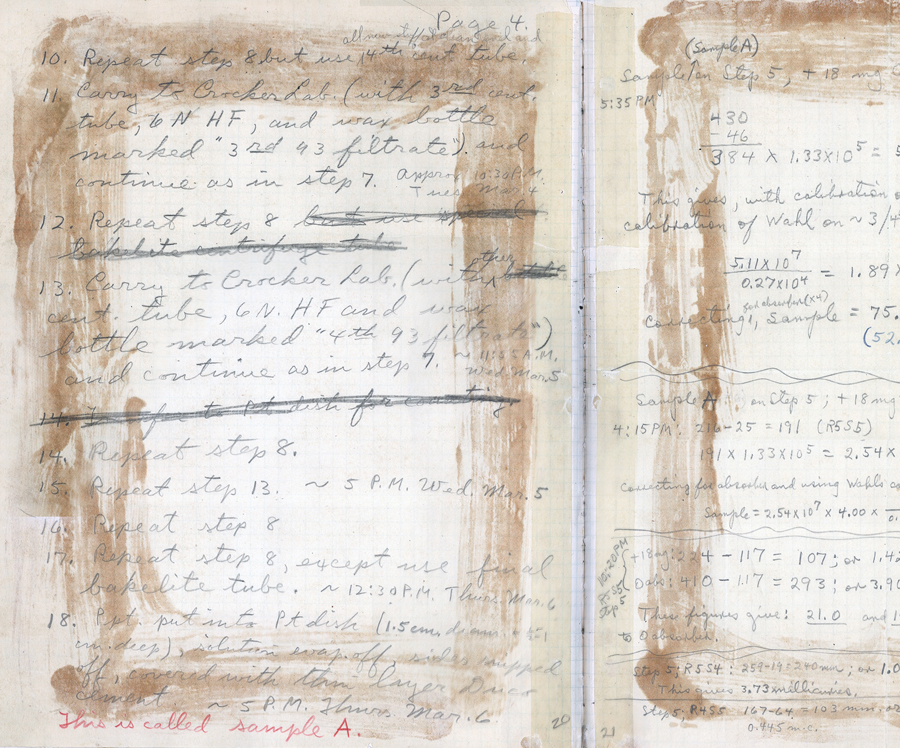 Page 4.
10. Repeat step 8, but use 4th cent tube.
11. Carry to Crocker Lab. (with 3rd cent.
tube, 6N HF, and wax bottle
marked "3rd 93 filtrate"). and
continue as in step 7. approx. 10:30 P.M.
Tues. Mar. 4
12. Repeat step 8 but use special
bakelite centrifuge tube
13. Carry to Crocker Lab. (with other
cent. tube, 6N. HF and wax
bottle marked "4th 93 filtrate")
and continue as in step 7. ~ 11:55 A.M.
Wed. Mar. 5
14. Transfer to Pt dish for counting.
14. Repeat step 8.
15. Repeat step 13. ~ 5 P.M. Wed. Mar. 5
16. Repeat step 8
17. Repeat step 8, except use final
bakelite tube. ~ 12:30 P.M. Thurs. Mar. 6
18. Ppt. put into Pt dish (1.5 cm. diam.
cm. deep), solution evap. off, sides wiped
off, covered with thin layer Duco
cement ~ 5 P.M. Thurs. Mar. 6.
This is called sample A.
20
(Sample A)
Sample on Step 5, + 18 mg
5:35 PM
430
- 46
384 X 1.33X10⁵ = 5
This gives, with calibration
calibration of Wahl on ~ 3/4
5.11X10⁷
0.27X10⁴
= 1.89X
for absorber (x4)
Correcting, Sample = 75.
(52.
Sample A on Step 5; +18 mg
4:15 PM: 216-25 = 191 (R5S5)
191 X 1.33X10⁵ = 2.54X
Correcting for absorber and using Wahl's
Sample = 2.54X10⁷ X 4.00 X
0.
10:20 PM
R5S5
Step 5
+18mg: 224 - 117 = 107; or 1.42
0 abs: 410 - 117 = 293; or 3.90
This figures give: 21.0 and
to 0 absorber.
Step 5; R5S4: 259-19=240 mm; or 1.0
This gives 3.73 millicuries.
Step 5; R4S5 167-64 = 103 mm. or
0.445 m.c.
21